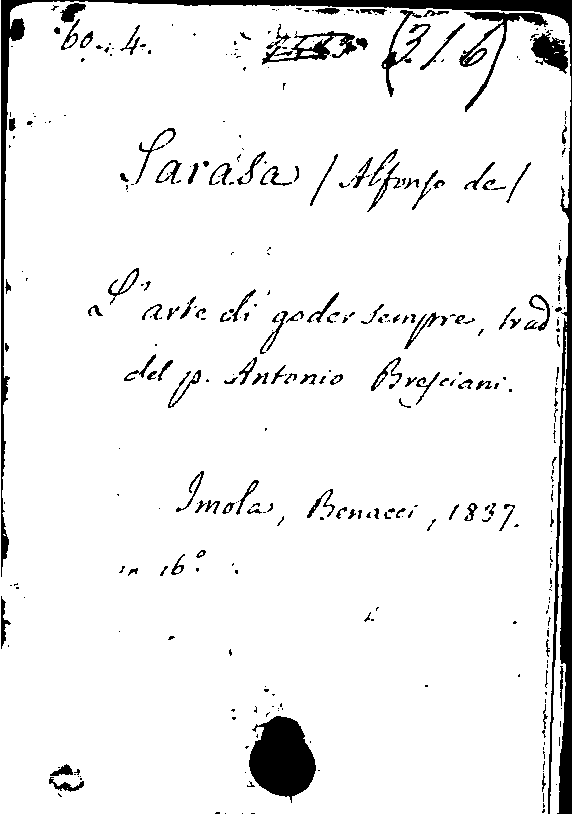 60. 4. (316)
Sarasa / Alfonso de /
L'arte di goder sempre, trad
del p. Antonio Bresciani.
Imola, Benacci, 1837.
in 16°.